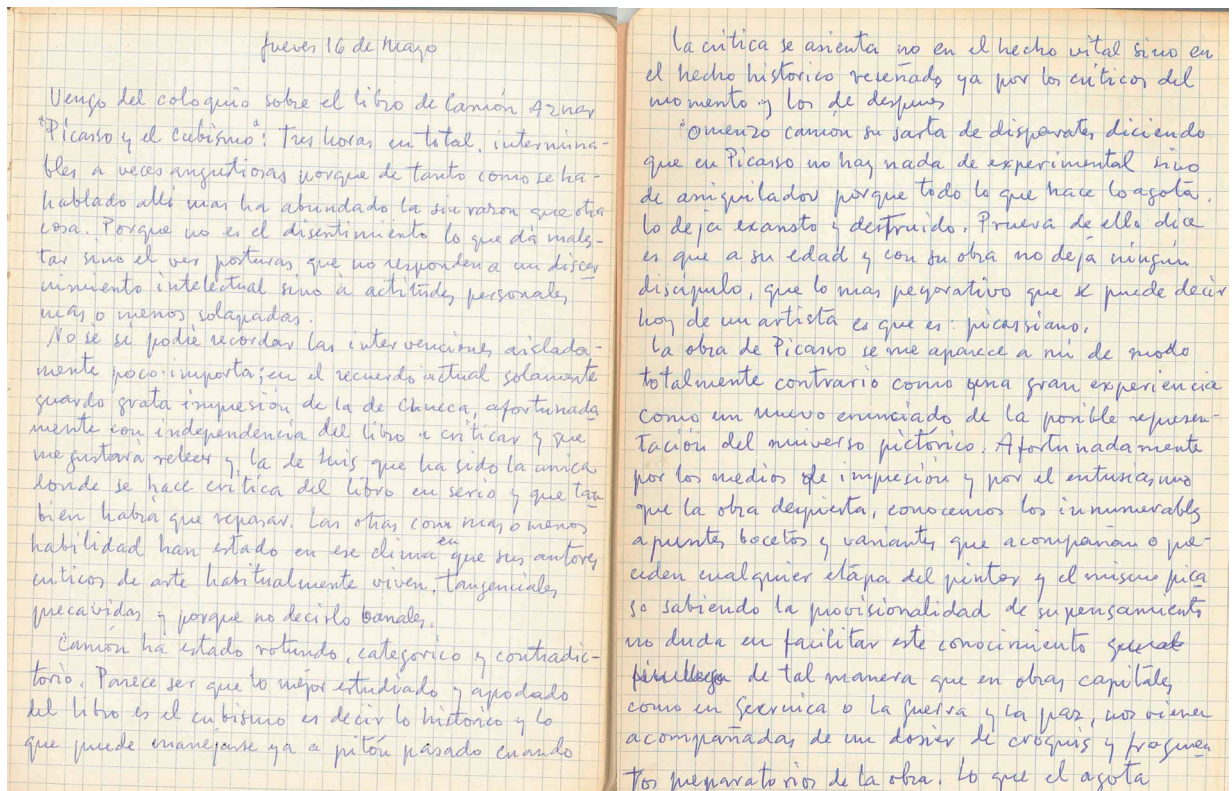 Jueves 16 de Mayo
Vengo del coloquio sobre el libro de Camón Aznar
"Picasso y el cubismo": Tres horas en total, intermina-
bles a veces angustiosas porque de tanto como se ha-
hablado allí mas ha abundado la sin razon que otra
cosa. Porque no es el disentimiento lo que dá males-
tar sino el ver posturas que no responden a un discer
nimiento intelectual sino a actitudes personales
mas o menos solapadas.
No sé si podré recordar las intervenciones aislada-
mente poco importa; en el recuerdo actual solamente
guardo grata impresión de la de Chueca, afortunada
mente con independencia del libro a criticar y que
me gustará releer y la de Luis que ha sido la unica
donde se hace crítica del libro en serio y que tam
bien habrá que repasar. Las otras con mas o menos
habilidad han estado en ese clima en que sus autores
criticos de arte habitualmente viven, tangenciales,
precavidas y porque no decirlo banales.
Camón ha estado rotundo, categorico y contradic-
torio. Parece ser que lo mejor estudiado y apodado
del libro es el cubismo es decir lo histórico y lo
que puede manejarse ya a pitón pasado cuando
la crítica se asienta no en el hecho vital sino en
el hecho histórico reseñado ya por los críticos del
momento y los de despues
Comenzo camón su sarta de disparates diciendo
que en Picasso no hay nada de experimental sino
de aniquilador porque todo lo que hace lo agota,
lo deja exausto y destruido. Prueva de ello dice
es que a su edad y con su obra no deja ningún
discipulo, que lo mas peyorativo que se puede decir
hoy de un artista es que es: picassiano.
La obra de Picasso se me aparece a mi de modo
totalmente contrario como una gran experiencia
como un nuevo enunciado de la posible represen-
tación del universo pictórico. Afortunadamente
por los medios de impresión y por el entusiasmo
que la obra despierta, conocemos los innumerables
apuntes bocetos y variantes que acompañan o pre-
ceden cualquier etapa del pintor y el mismo pica
so sabiendo la provisionalidad de su pensamiento
no duda en facilitar este conocimiento
de tal manera que en obras capitales
como en Gernica o la guerra y la paz, nos vienen
acompañadas de un dosier de croquis y fragmen
tos preparatorios de la obra. Lo que el agota